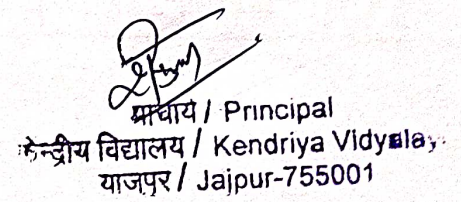 प्राचार्य / Principal
केन्द्रीय विद्यालय / Kendriya Vidyalay
याजपुर / Jajpur-755001